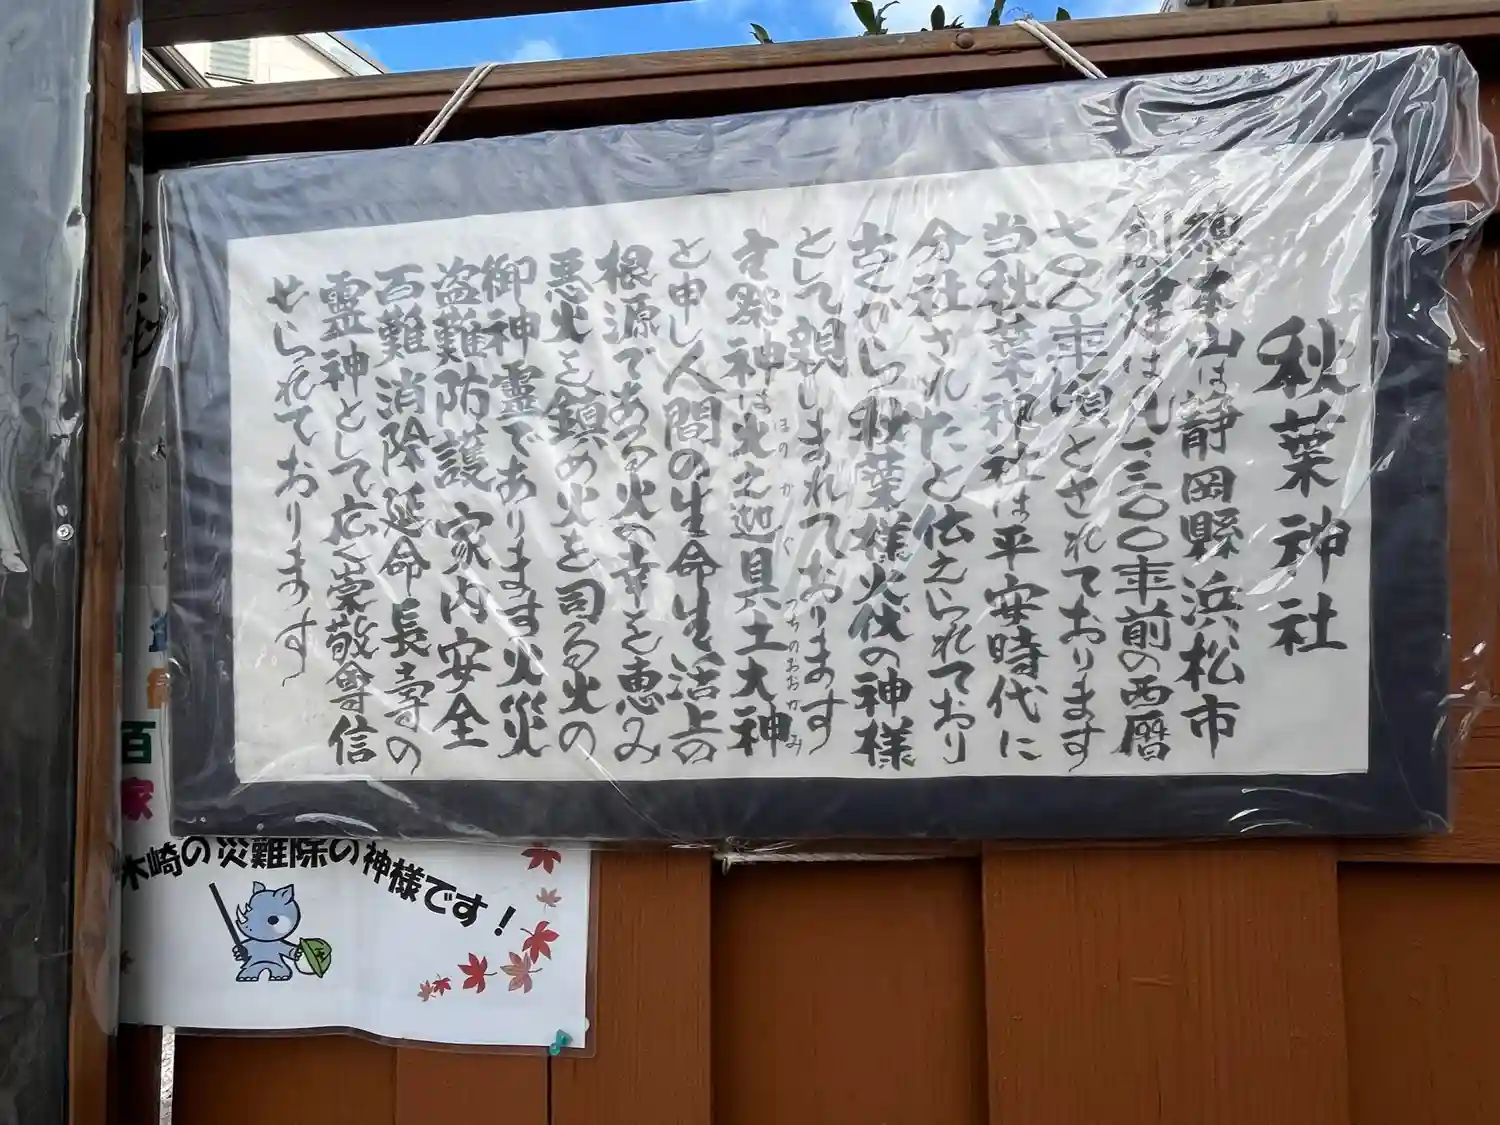 秋葉神社
總本山は静岡縣浜松市
創建は凡一三〇〇年前の西暦
七〇〇年頃とされております
当秋葉神社は平安時代に
分社されたと伝えられており
古くから秋葉様火伐の神様
として親しまれております
主祭神は火之迦具土大神
ほのかぐつちのおおかみ
と申し人間の生命生活上の
根源である火の幸を恵み
悪火を鎮め火を司る火の
御神霊であります火災
盗難防護家内安全
百難消除延命長寿の
霊神として広く崇敬尊信
せられております
木崎の災難除の神様です！
百
家